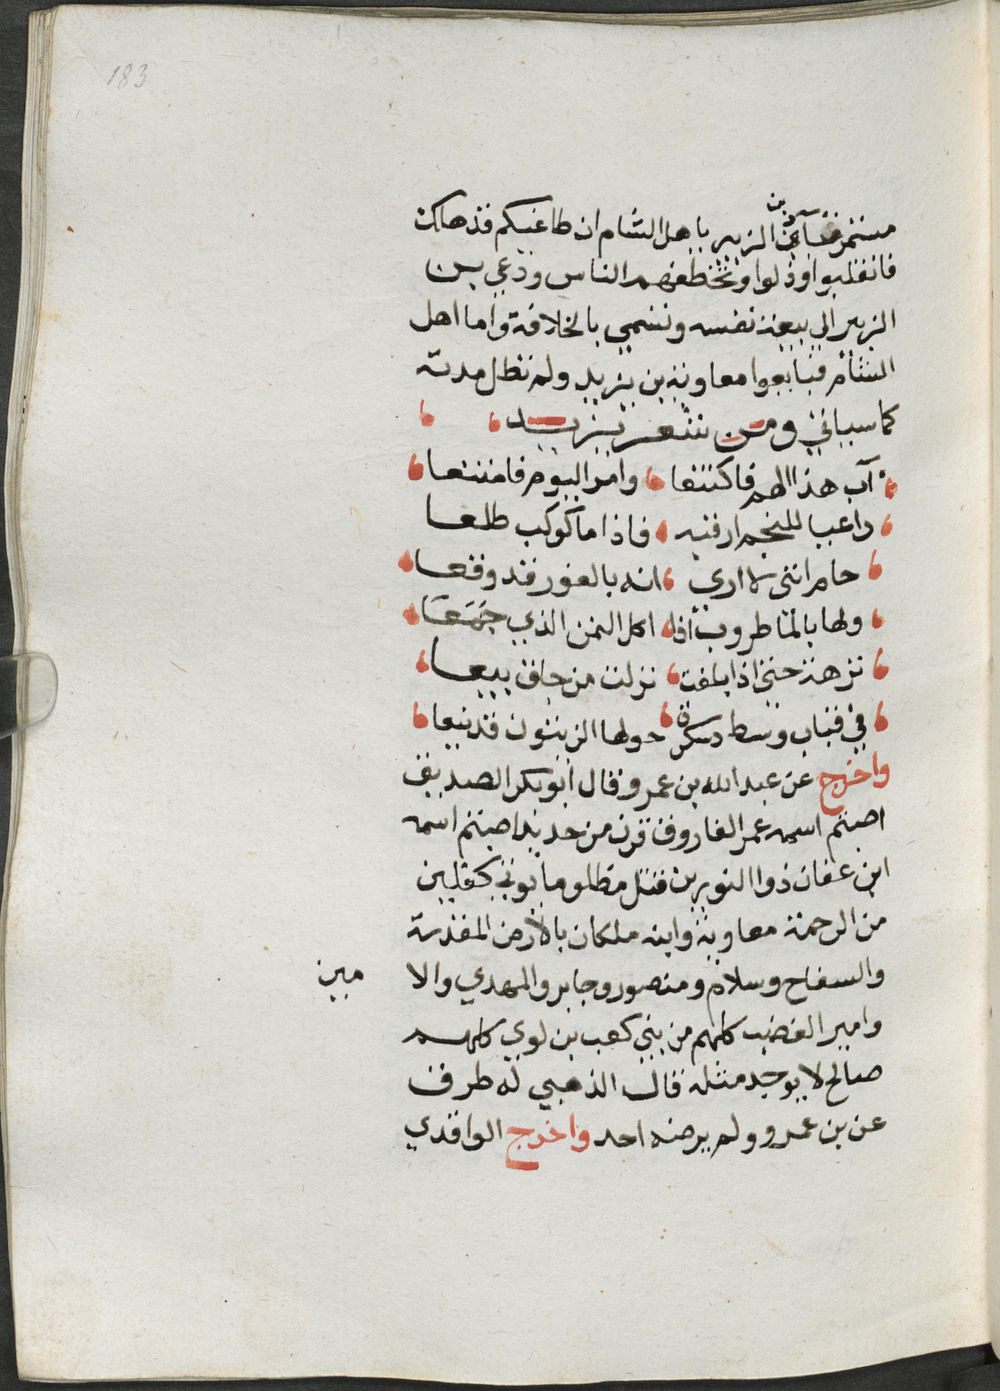 183
مستمر فنادى بن الزبير ياهل الشام ان طاغيتكم قد هلك
فانفلبوا وذلوا وتخطفهم الناس ودعي بن
الزبير الى بيعة نفسه وتسمي بالخلافة واما اهل
الشام فبايعوا معاوية بن يزيد ولم تطل مدته
كما سياتي ومن شعر يزيد
آب هذا الهم فاكتنعا وامر النوم فامتنعا
راعيا للنجم ارقبه فاذا ما كوكب طلعا
حام انني لا ارى انه بالغور قد وقعا
ولها بالماطرون اذا اكل النمل الذي جَمَعَا
نزهة حتى اذا بلغت نزلت من جلق بيعا
في قباب وسط دسكرة حولها الزيتون قد ينعا
واخرج عن عبد الله بن عمرو قال ابو بكر الصديق
اصبتم اسمه عمر الفاروق قرن من حديد اصبتم اسمه
ابن عفان ذوا النورين قتل مظلوما يوتي كفلين
من الرحمة معاوية وابنه ملكان بالأرض المقدسة
والسفاح وسلام ومنصور وجابر والمهدي والا مين
وامير الغضب كلهم من بني كعب بن لوي كلهم
صالح لا يوجد مثله قال الذهبي له طرق
عن بن عمرو ولم يرفعه احد واخرج الواقدي